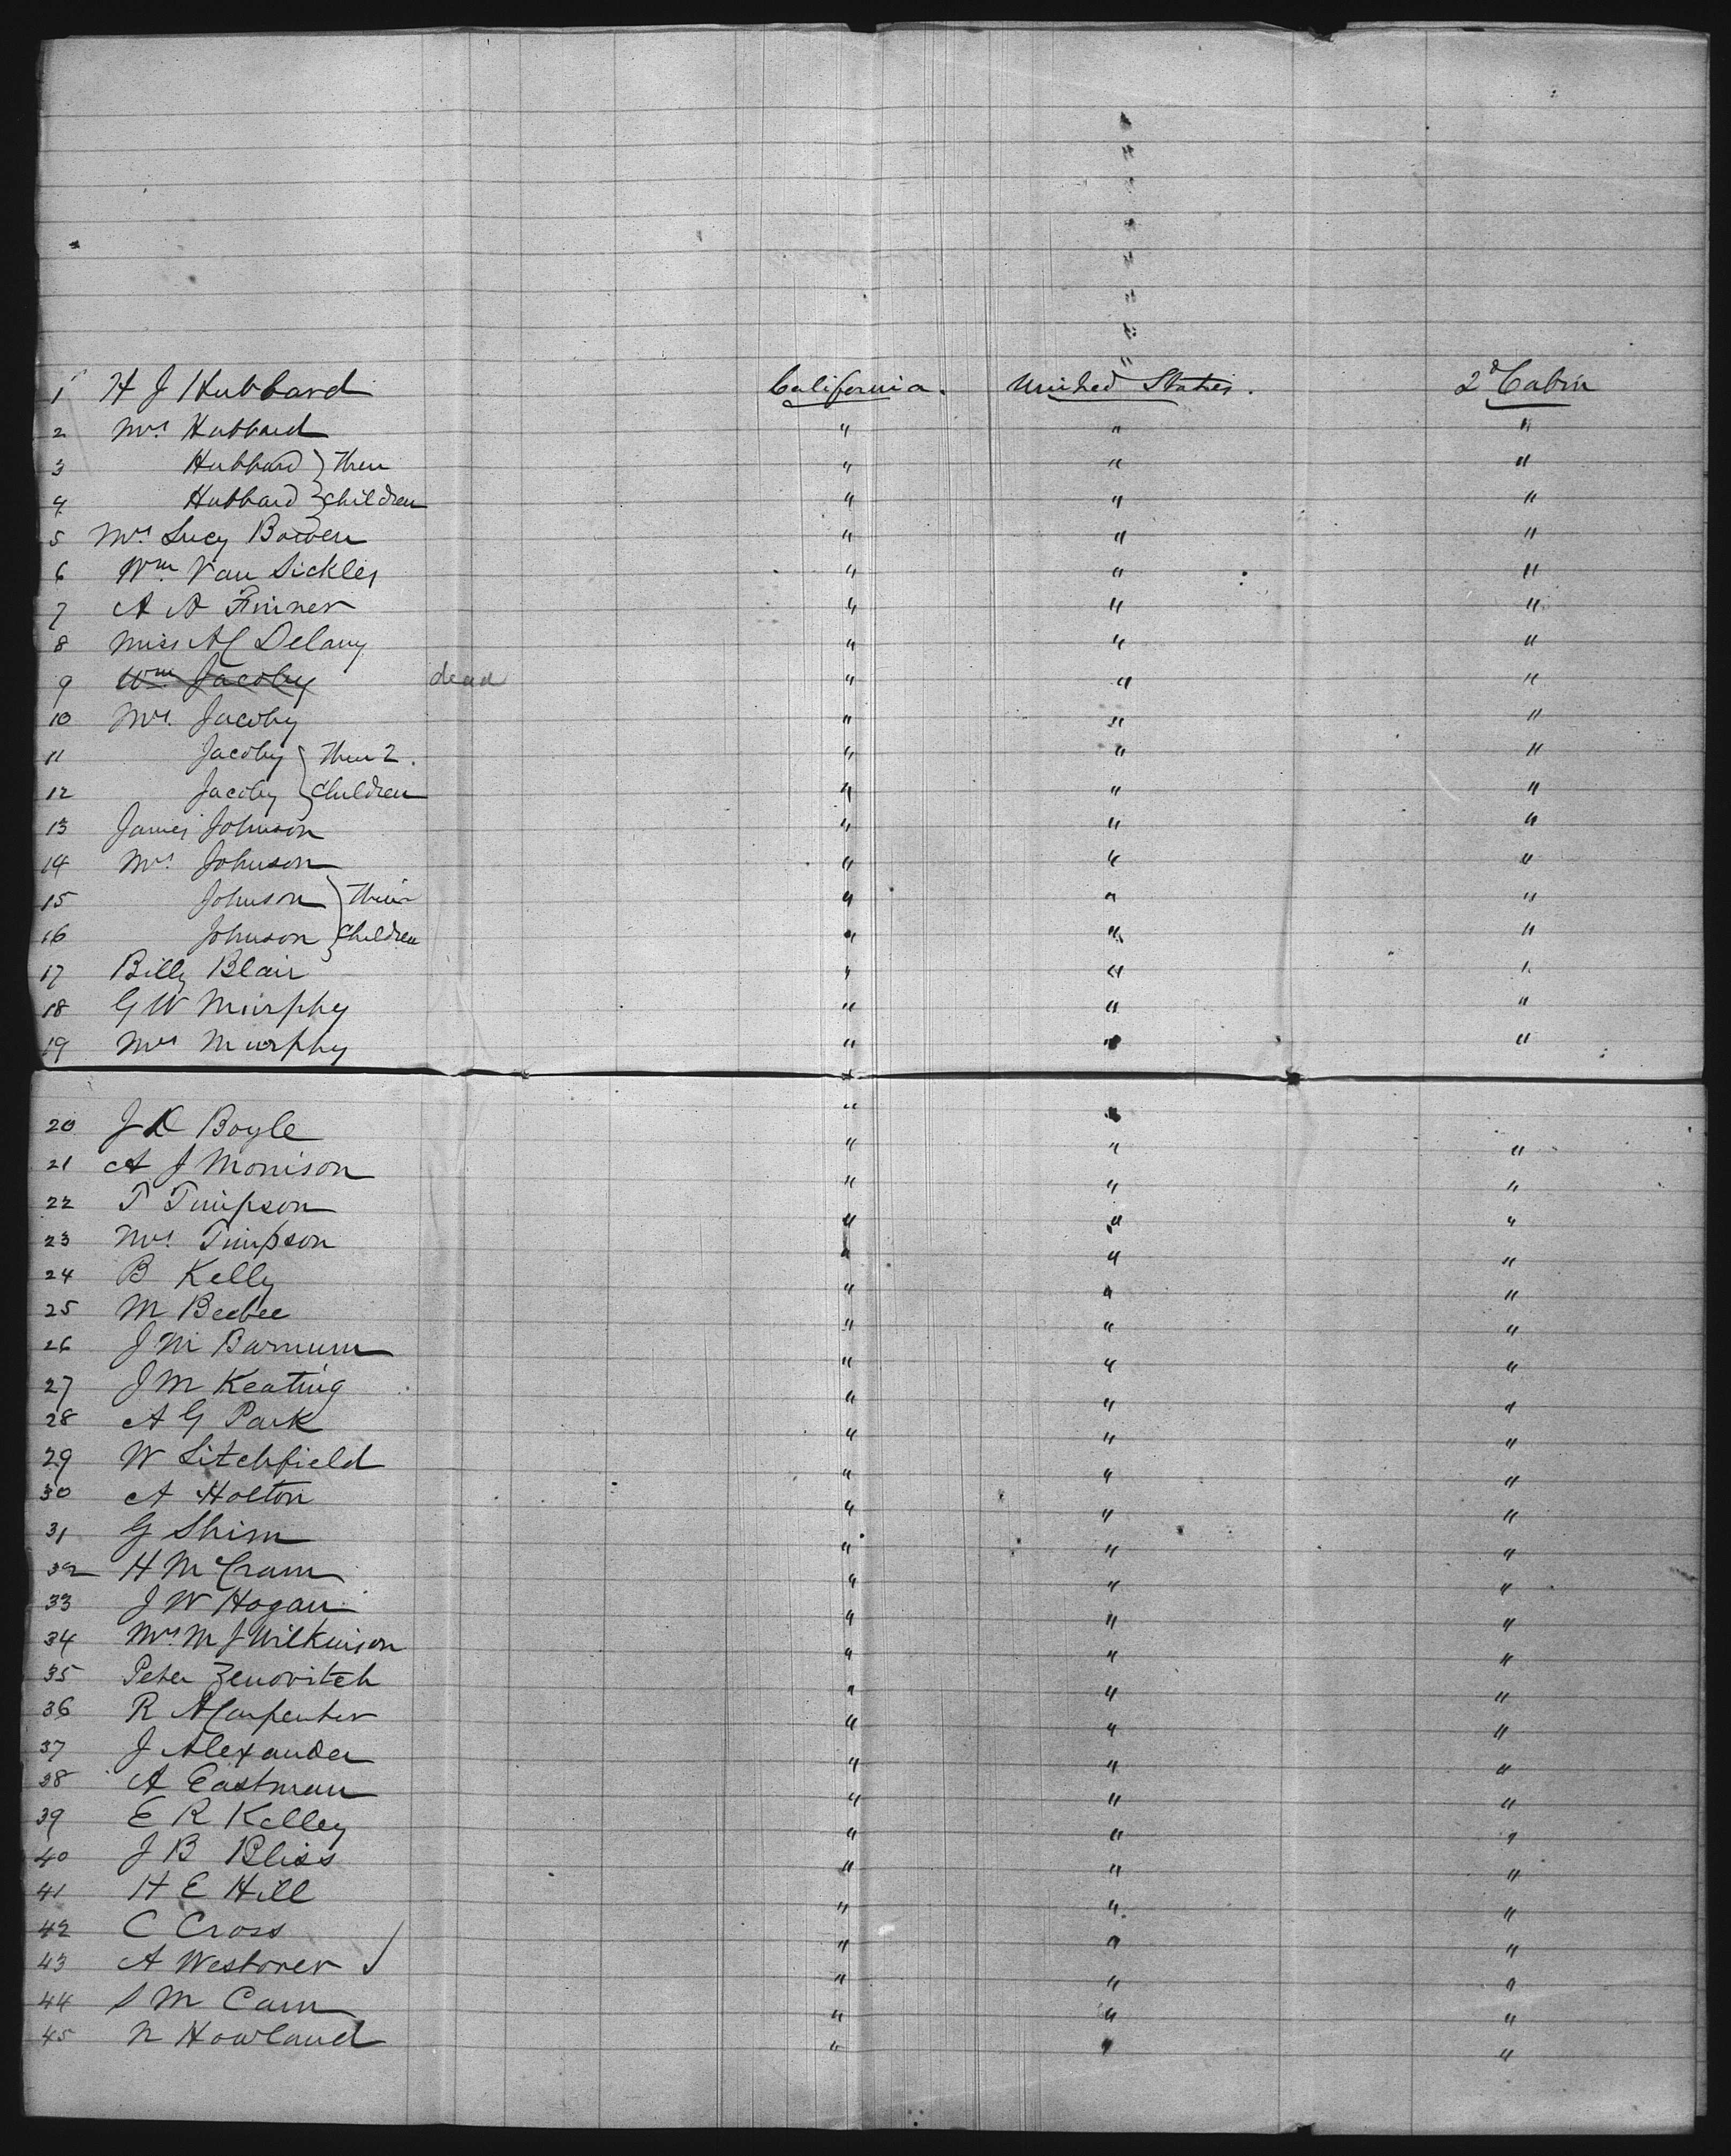 "
"
"
"
"
"
"
"
1 H J Hubbard California. United States. 2d Cabin
2 Mrs Hubbard " " "
3 Hubbard } Their " " "
4 Hubbard } Children " " "
5 Mrs Lucy Bowen " " "
6 Wm Van Sickles " " "
7 A A " " "
8 Miss A C Delany " " "
9 Wm Jacoby dead " " "
10 Mrs. Jacoby " " "
11 Jacoby } Their 2. " " "
12 Jacoby } Children " " "
13 James Johnson " " "
14 Mrs Johnson " " "
15 Johnson } Their " " "
16 Johnson } Children " " "
17 Billy Blair " " "
18 G W Murphy " " "
19 Mrs Murphy " " "
20 J D Boyle " "
21 A J Morrison " " "
22 T Timpson " " "
23 Mrs Timpson " " "
24 B Kelly " " "
25 M Beebee " " "
26 J M Barnum " " "
27 J M Keating " " "
28 A G Park " " "
29 W Litchfield " " "
30 A Holton " " "
31 G Shinn " " "
32 H McCram " " "
33 J W Hogan " " "
34 Mrs M J Wilkinson " " "
35 Peter Zenovitch " " "
36 R A Carpenter " " "
37 J Alexander " " "
38 A Eastman " " "
39 E R Kelley " " "
40 J B Bliss " " "
41 H E Hill " " "
42 C Cross " " "
43 A Westover " " "
44 S M Cam " " "
45 N Howland " " "